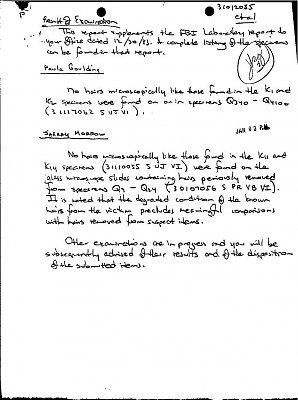 31012035
et al
Result of Examination
This report supplements the FBI Laboratory report to
your office dated 12/30/83. A complete listing of the specimens
can be found in that report.
Paula Goulding
No hairs microscopically like those found in the K1 and
K2 specimens were found on or in specimens Q390 - Q400
(31117042 S UJ VI).
SHERRY MORROW
No hairs microscopically like those found in the K11 and
K14 specimens (31110055 S UJ VI) were found on the
glass microscope slides containing hairs previously removed
from specimens Q3 - Q24 (30107056 S PR VB VE).
It is noted that the degraded condition of the brown
hairs from the victim precludes meaningful comparisons
with hairs removed from suspect items.
Other examinations are in progress and you will be
subsequently advised of their results and of the disposition
of the submitted items.